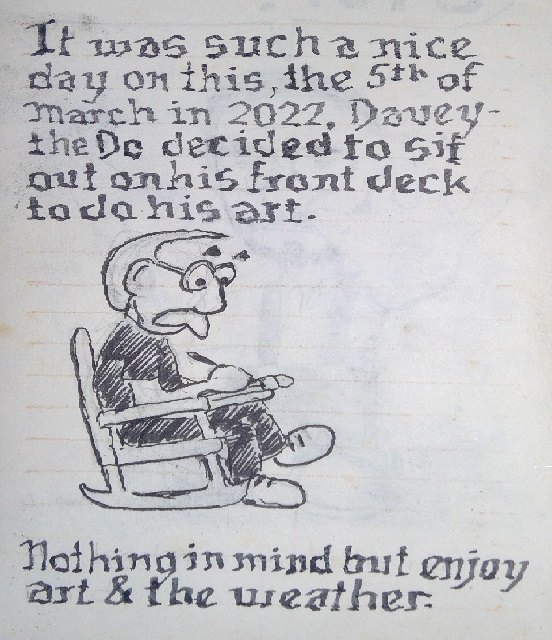 It was such a nice
day on this, the 5th of
March in 2022. Davey-
the Do decided to sit
out on his front deck
to do his art.
Nothing in mind but enjoy
art & the weather.